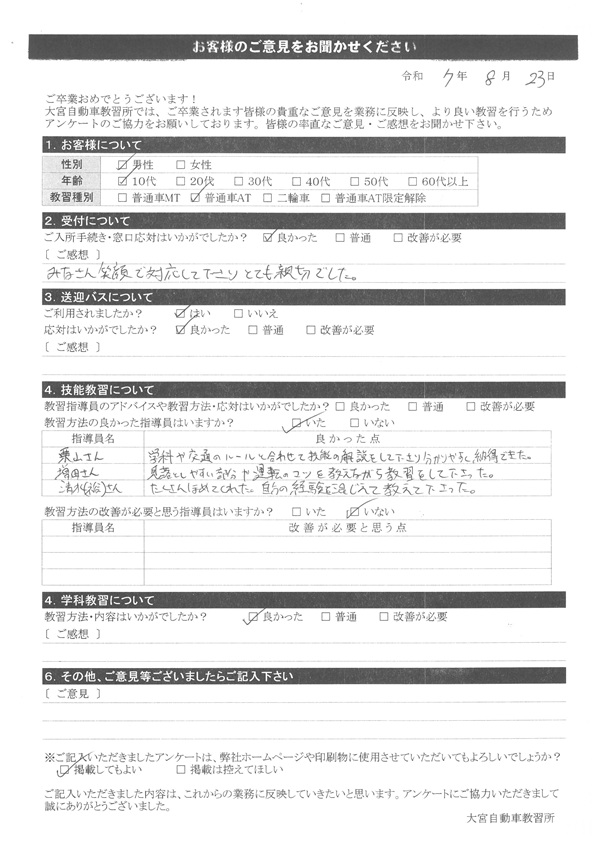 お客様のご意見をお聞かせください
令和 7 年 8 月 23 日
ご卒業おめでとうございます！
大宮自動車教習所では、ご卒業されます皆様の貴重なご意見を業務に反映し、より良い教習を行うため
アンケートのご協力をお願いしております。皆様の率直なご意見・ご感想をお聞かせ下さい。
1. お客様について
性別 ☑ 男性 □ 女性
年齢 ☑ 10代 □ 20代 □ 30代 □ 40代 □ 50代 □ 60代以上
教習種別 □ 普通車MT ☑ 普通車AT □ 二輪車 □ 普通車AT限定解除
2. 受付について
ご入所手続き・窓口応対はいかがでしたか？ ☑ 良かった □ 普通 □ 改善が必要
〔 ご感想 〕
みなさん笑顔で対応して下さりとても親切でした。
3. 送迎バスについて
ご利用されましたか？ ☑ はい □ いいえ
応対はいかがでしたか？ ☑ 良かった □ 普通 □ 改善が必要
〔 ご感想 〕
4. 技能教習について
教習指導員のアドバイスや教習方法・応対はいかがでしたか？ □ 良かった □ 普通 □ 改善が必要
教習方法の良かった指導員はいますか？ ☑ いた □ いない
指導員名 良かった点
栗山さん 学科や交通のルールと合わせて技能の解説をして下さり分かりやすく納得できた。
増田さん 見落としやすい部分や運転のコツを教えながら教習をして下さった。
清水(裕)さん たくさんほめてくれた。自分の経験を混じえて教えて下さった。
教習方法の改善が必要と思う指導員はいますか？ □ いた ☑ いない
指導員名 改善が必要と思う点
4. 学科教習について
教習方法・内容はいかがでしたか？ ☑ 良かった □ 普通 □ 改善が必要
〔 ご感想 〕
6. その他、ご意見等ございましたらご記入下さい
〔 ご意見 〕
※ご記入いただきましたアンケートは、弊社ホームページや印刷物に使用させていただいてもよろしいでしょうか？
☑ 掲載してもよい □ 掲載は控えてほしい
ご記入いただきました内容は、これからの業務に反映していきたいと思います。アンケートにご協力いただきまして
誠にありがとうございました。
大宮自動車教習所